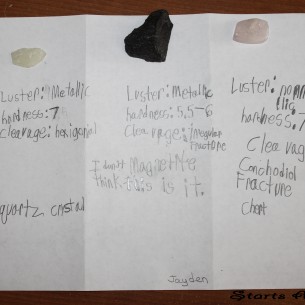 Luster: Metallic
hardness: 7
cleavage: hexigonal
quartz crystal
Luster: Metallic
hardness: 5.5-6
Cleavage: irregular
fracture
I don't magnetite
think this is it.
Luster: nonm
hardness: 7
Cleavag
Conchodial
Fracture
chert
Jayden
Starts